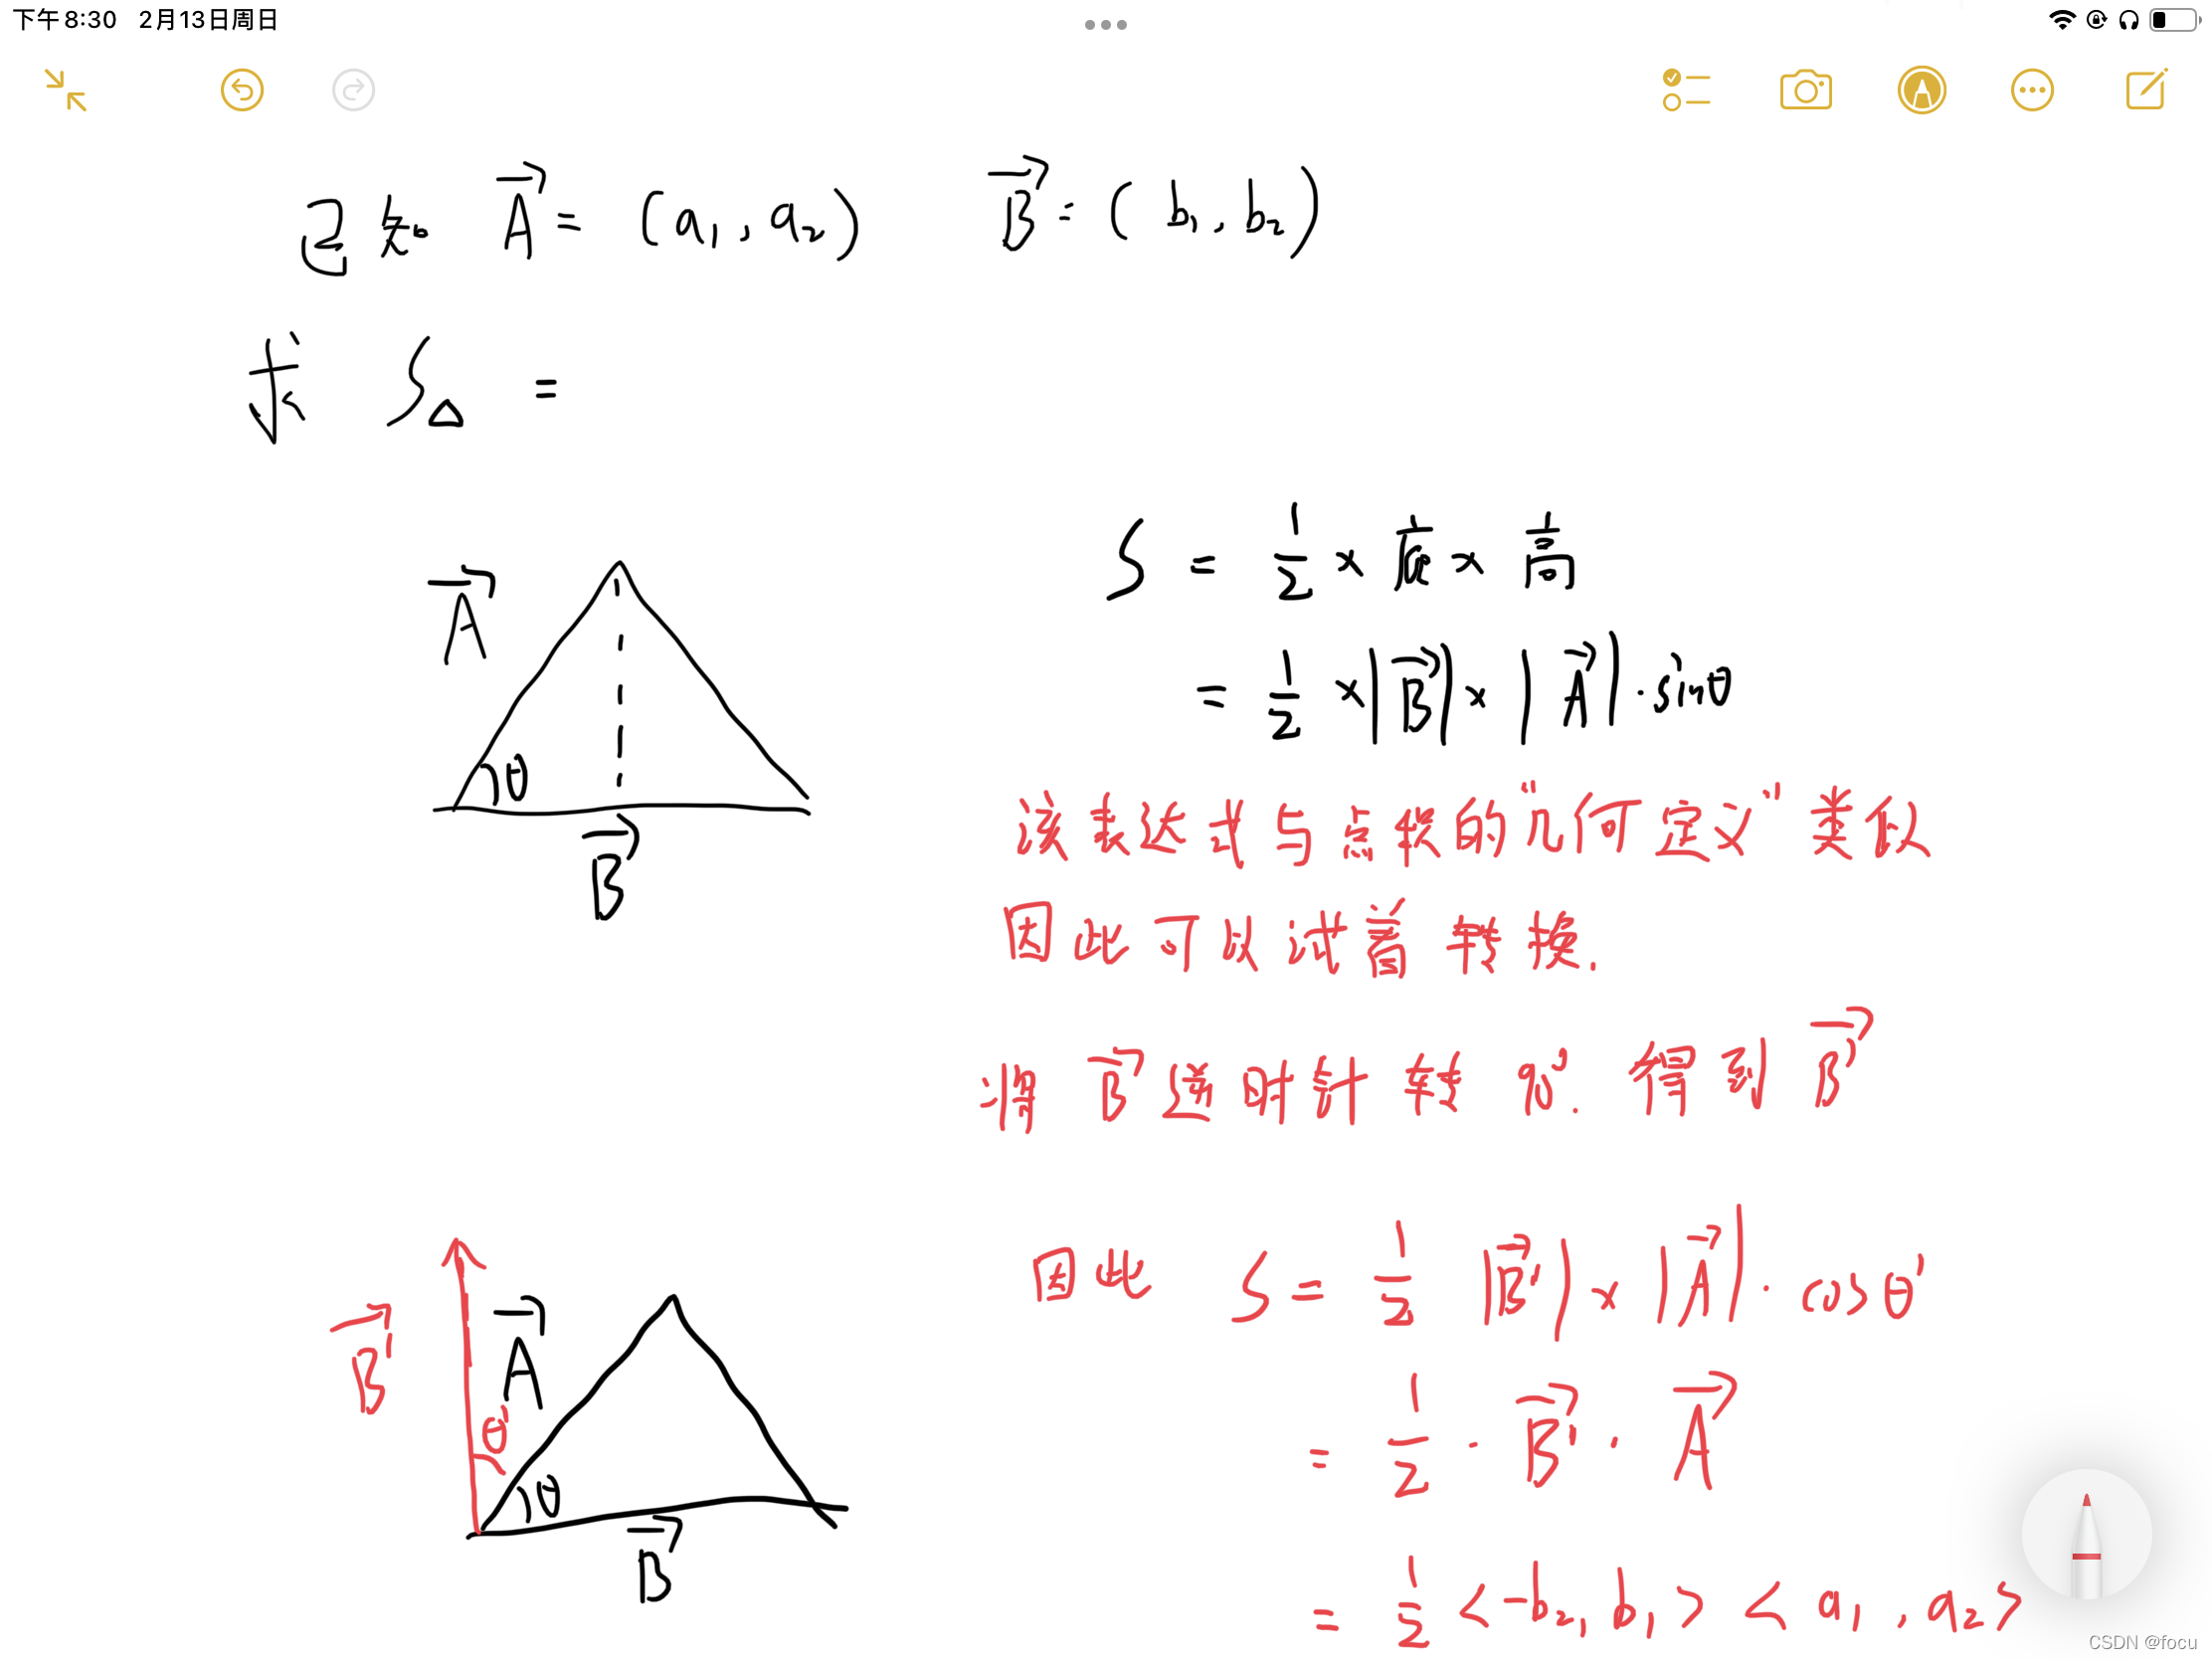 下午8:30 2月13日周日
已知 A⃗ = (a₁, a₂) B⃗ = (b₁, b₂)
求 S△ =
A⃗
θ
B⃗
S = 1/2 × 底 × 高
= 1/2 × |B⃗| × |A⃗| · sinθ
该表达式与点积的"几何定义"类似
因此可以试着转换.
将 B⃗ 逆时针转 90°. 得到 B⃗'
B⃗'
A⃗
θ'
θ
B⃗
因此 S = 1/2 |B⃗'| × |A⃗| · cosθ'
= 1/2 · B⃗' · A⃗
= 1/2 <-b₂, b₁> <a₁, a₂>
CSDN @focu